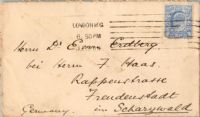 LONDON
6. 30 PM
Herrn Dr Erdberg
bei Herrn F. Haas.
Rappenstrasse
Freudenstadt
Germany in Scharzwald